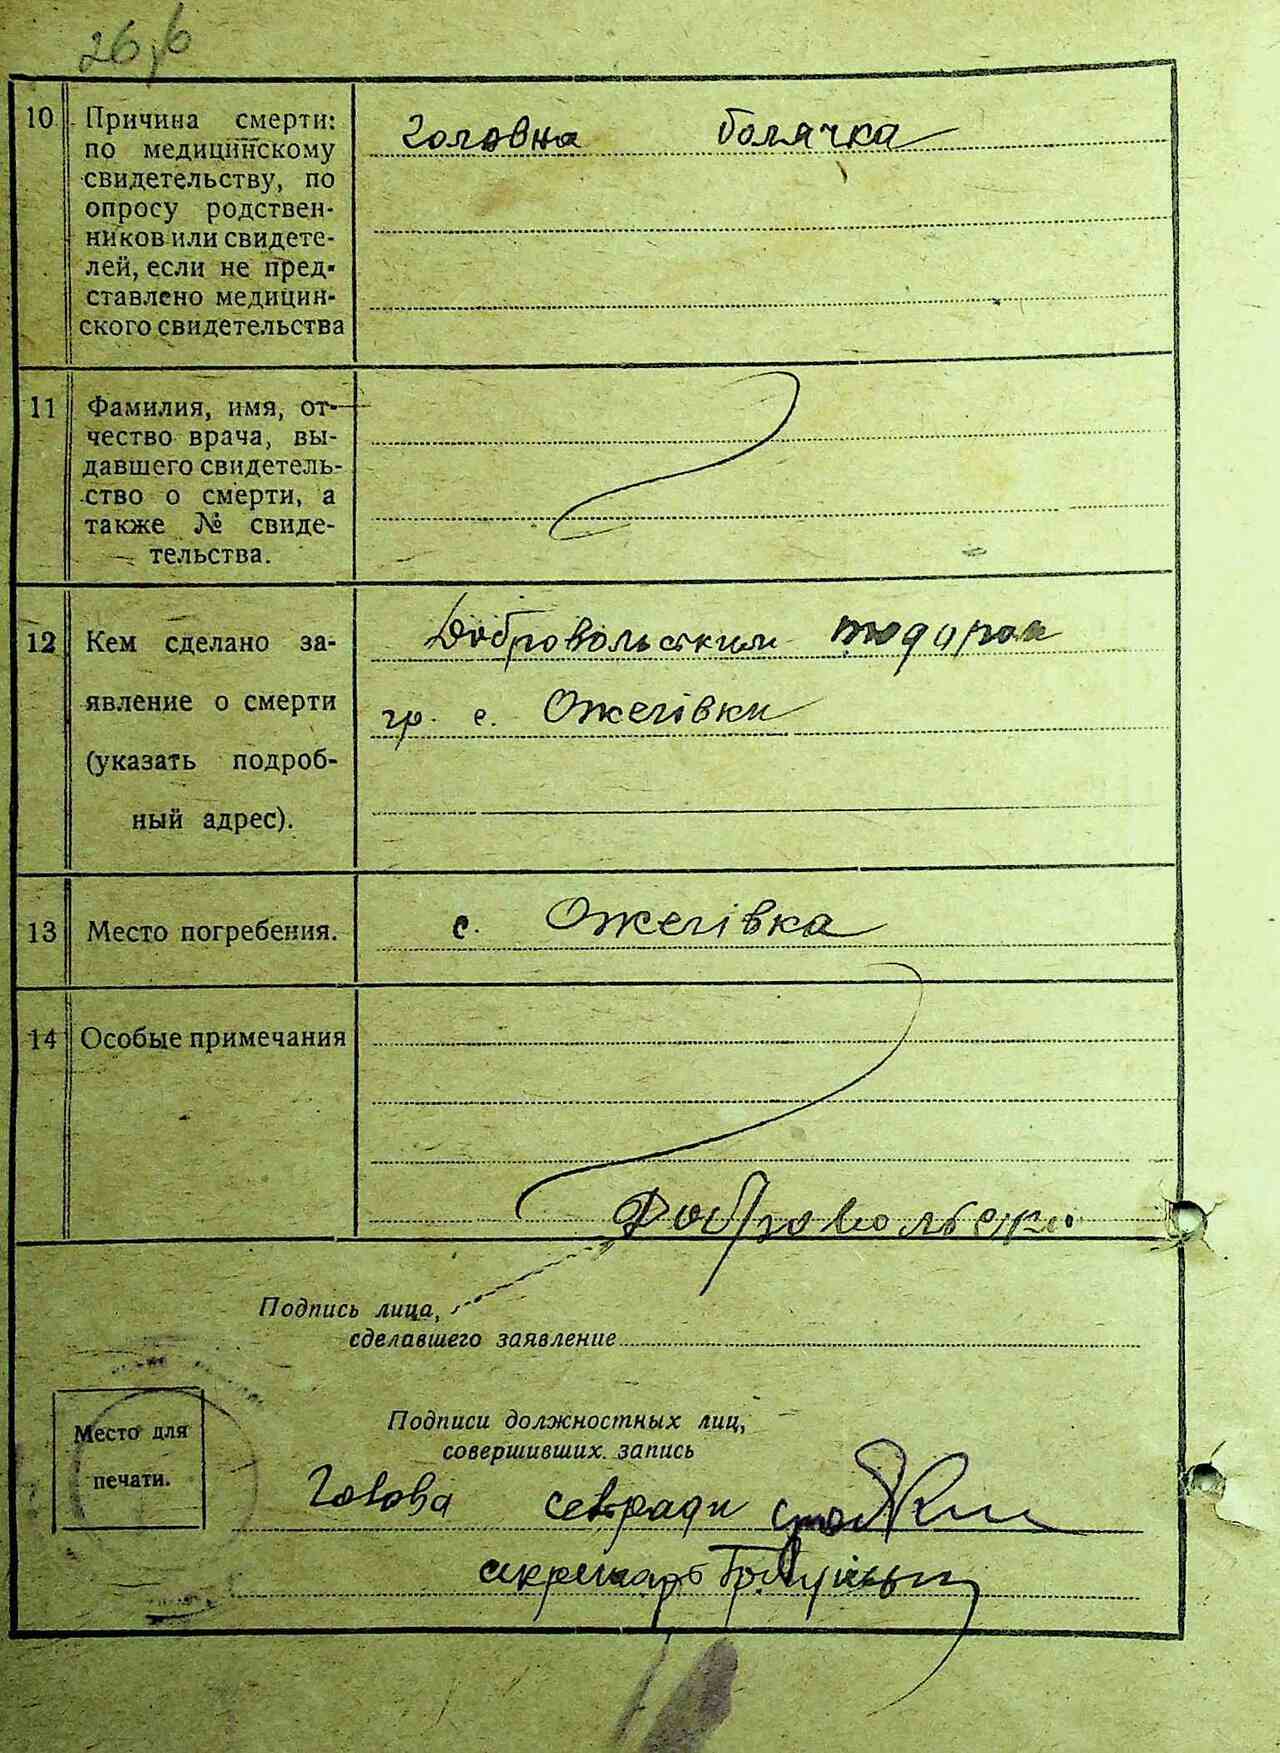 26,6
10 Причина смерти:
по медицинскому
свидетельству, по
опросу родствен-
ников или свидете-
лей, если не пред-
ставлено медицин-
ского свидетельства
Головна болячка
11 Фамилия, имя, от-
чество врача, вы-
давшего свидетель-
ство о смерти, а
также № свиде-
тельства.
12 Кем сделано за-
явление о смерти
(указать подроб-
ный адрес).
Добровольским тодором
гр. с. Ожегівки
13 Место погребения.
с. Ожегівка
14 Особые примечания
Добровольски
Подпись лица,
сделавшего заявление
Место для
печати.
Подписи должностных лиц,
совершивших запись
Голова сельради
секретарь